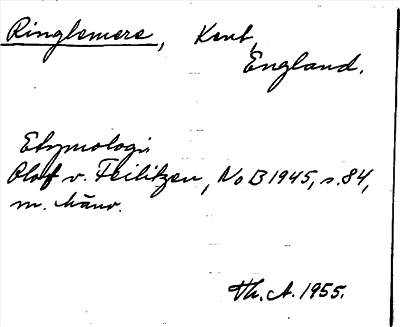 Ringlemere, Kent,
England.
Etymologi.
Olof v. Feilitzen, NoB 1945, s. 84,
m. hänv.
Th. A. 1955.